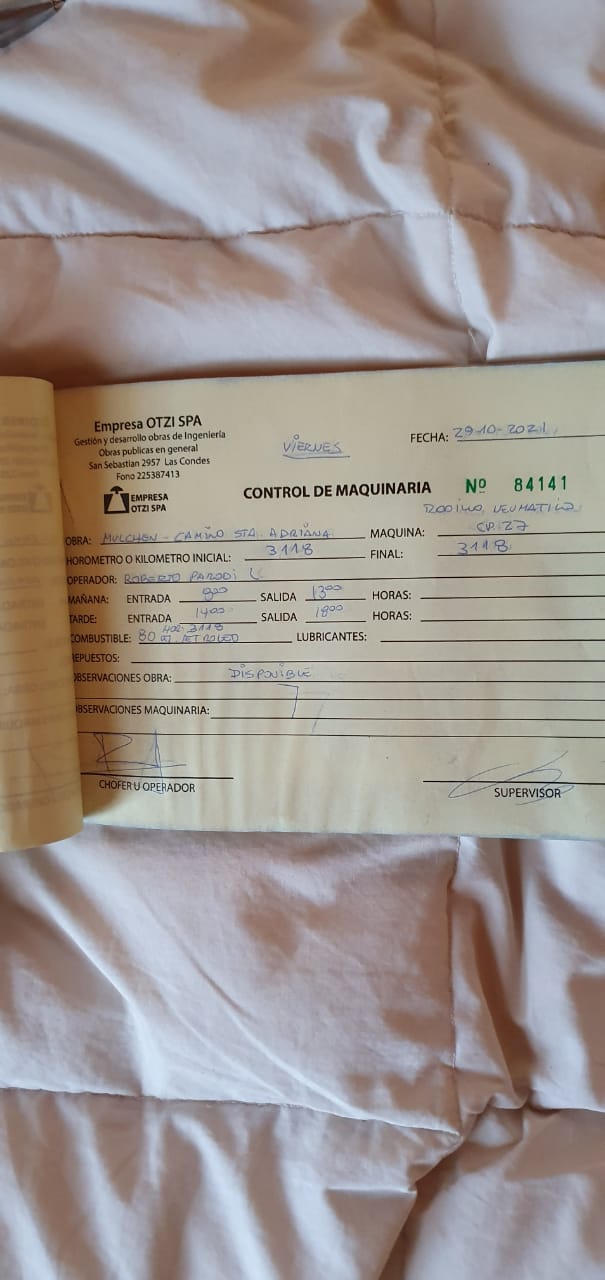 Empresa OTZI SPA
Gestión y desarrollo obras de Ingeniería
Obras publicas en general
San Sebastian 2957 Las Condes
Fono 225387413
EMPRESA
OTZI SPA
VIERNES
FECHA: 29-10-2021
CONTROL DE MAQUINARIA
Nº 84141
RODILLO NEUMATICO
OBRA: MULCHEN - CAMINO STA. ADRIANA MAQUINA: CP.27
HOROMETRO O KILOMETRO INICIAL: 3118 FINAL: 3118
OPERADOR: ROBERTO PARODI
MAÑANA: ENTRADA 8:00 SALIDA 13:00 HORAS:
TARDE: ENTRADA 14:00 SALIDA 18:00 HORAS:
HOR: 3118
COMBUSTIBLE: 80 LT. PETROLEO LUBRICANTES:
REPUESTOS:
OBSERVACIONES OBRA: DISPONIBLE
OBSERVACIONES MAQUINARIA:
CHOFER U OPERADOR
SUPERVISOR